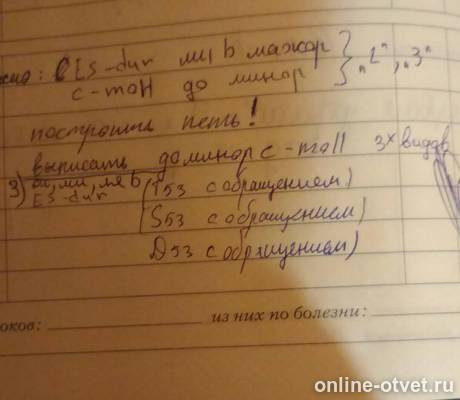 Es-dur ми b мажор } "2", "3"
c-moll до минор
построить петь!
выписать до минор c-moll 3х видов
3) си, ми, ля b (T53 с обращением)
Es-dur (S53 с обращением)
D53 с обращением)
оков: из них по болезни:
online-otvet.ru